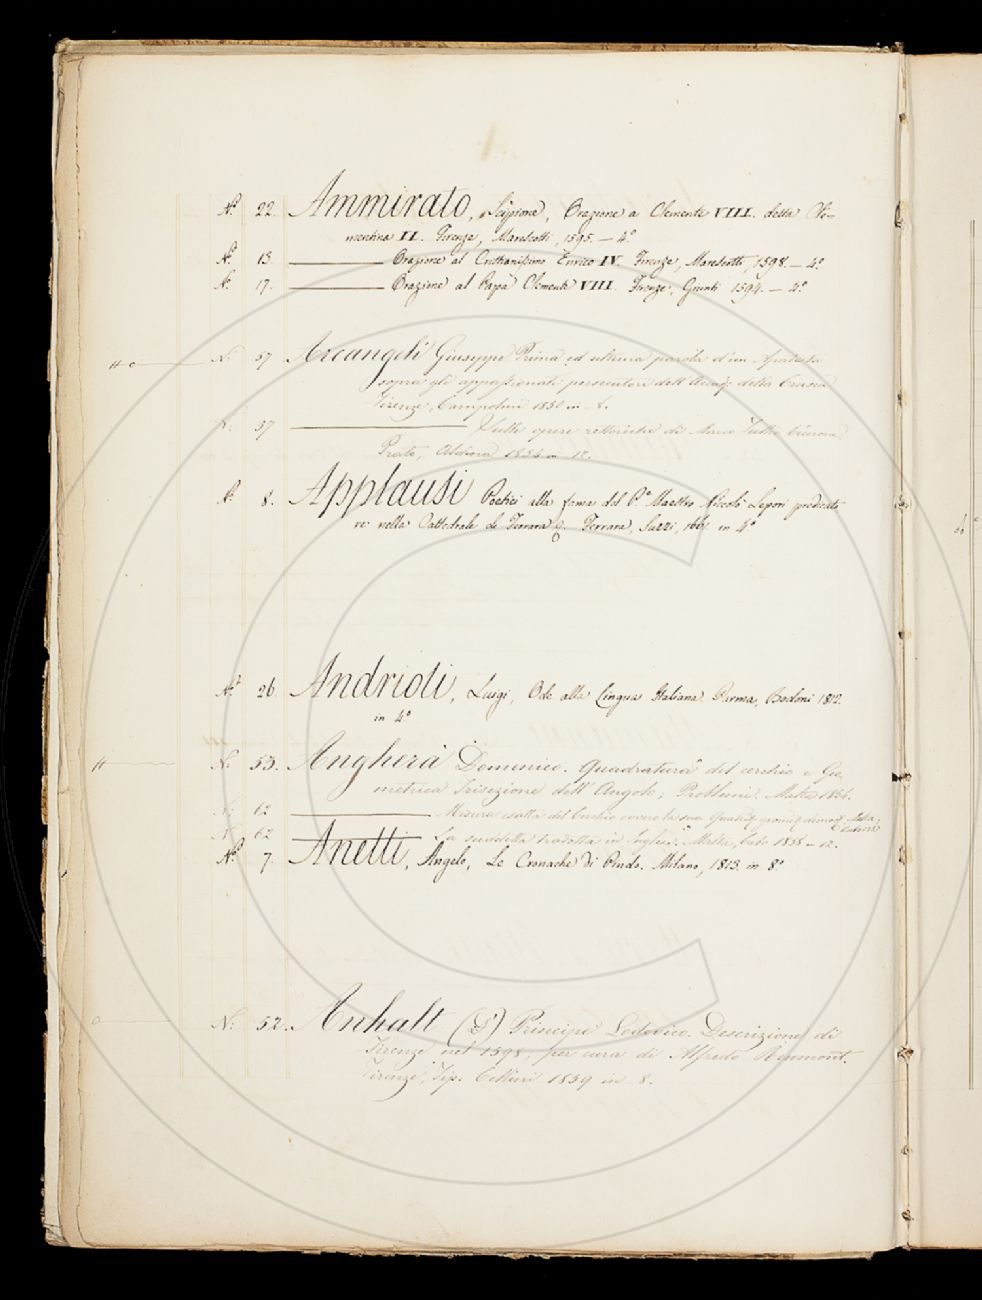 Nº 22. Ammirato, Scipione, Orazione a Clemente VIII. detta Cle-
mentina II. Firenze, Marescotti, 1595. — 4º
Nº 13. Orazione al Cristianissimo Enrico IV. Firenze, Marescotti, 1598. — 4º
Nº 17. Orazione al Papa Clemente VIII. Firenze, Giunti 1594. — 4º
Nº 57 Arcangeli Giuseppe Prima ed ultima parola d'un Apatista
sopra gli appassionati persecutori dell'Accad. della Crusca
Firenze, Campolmi 1850 in-8.
N. 57 Sulle opere rettoriche di Marco Tullio Cicerone
Prato, Alberghetti 1854 in-12.
Nº 8. Applausi Poetici alla fama del P.e Maestro Niccolò Lepori predicato
re nella Cattedrale di Ferrara. Ferrara, Suzzi, 1661 in 4º
Nº 26. Andrioli, Luigi, Ode alla Lingua Italiana. Parma, Bodoni 1812.
in 4º
N. 53. Angherà Domenico. Quadratura del cerchio e Geo
metrica Trisezione dell'Angolo; Problemi. Malta 1854.
N. 62 Misura esatta del Cerchio ovvero la sua Malta
N. 62 La suddetta tradotta in Inglese. Malta, 1855 - 12.
Nº 7. Anetti, Angelo, Le Cronache di Pindo. Milano, 1813. in 8º
N. 52. Anhalt (d') Principe Lodovico. Descrizione di
Firenze nel 1598; per cura di Alfredo Reumont.
Firenze, Tip. Cellini 1859 in-8.